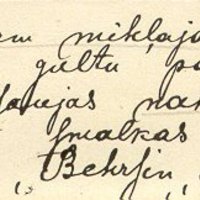 em mikļaja
gultu pa
Jaujas nak
smalkas
"Behrsin,